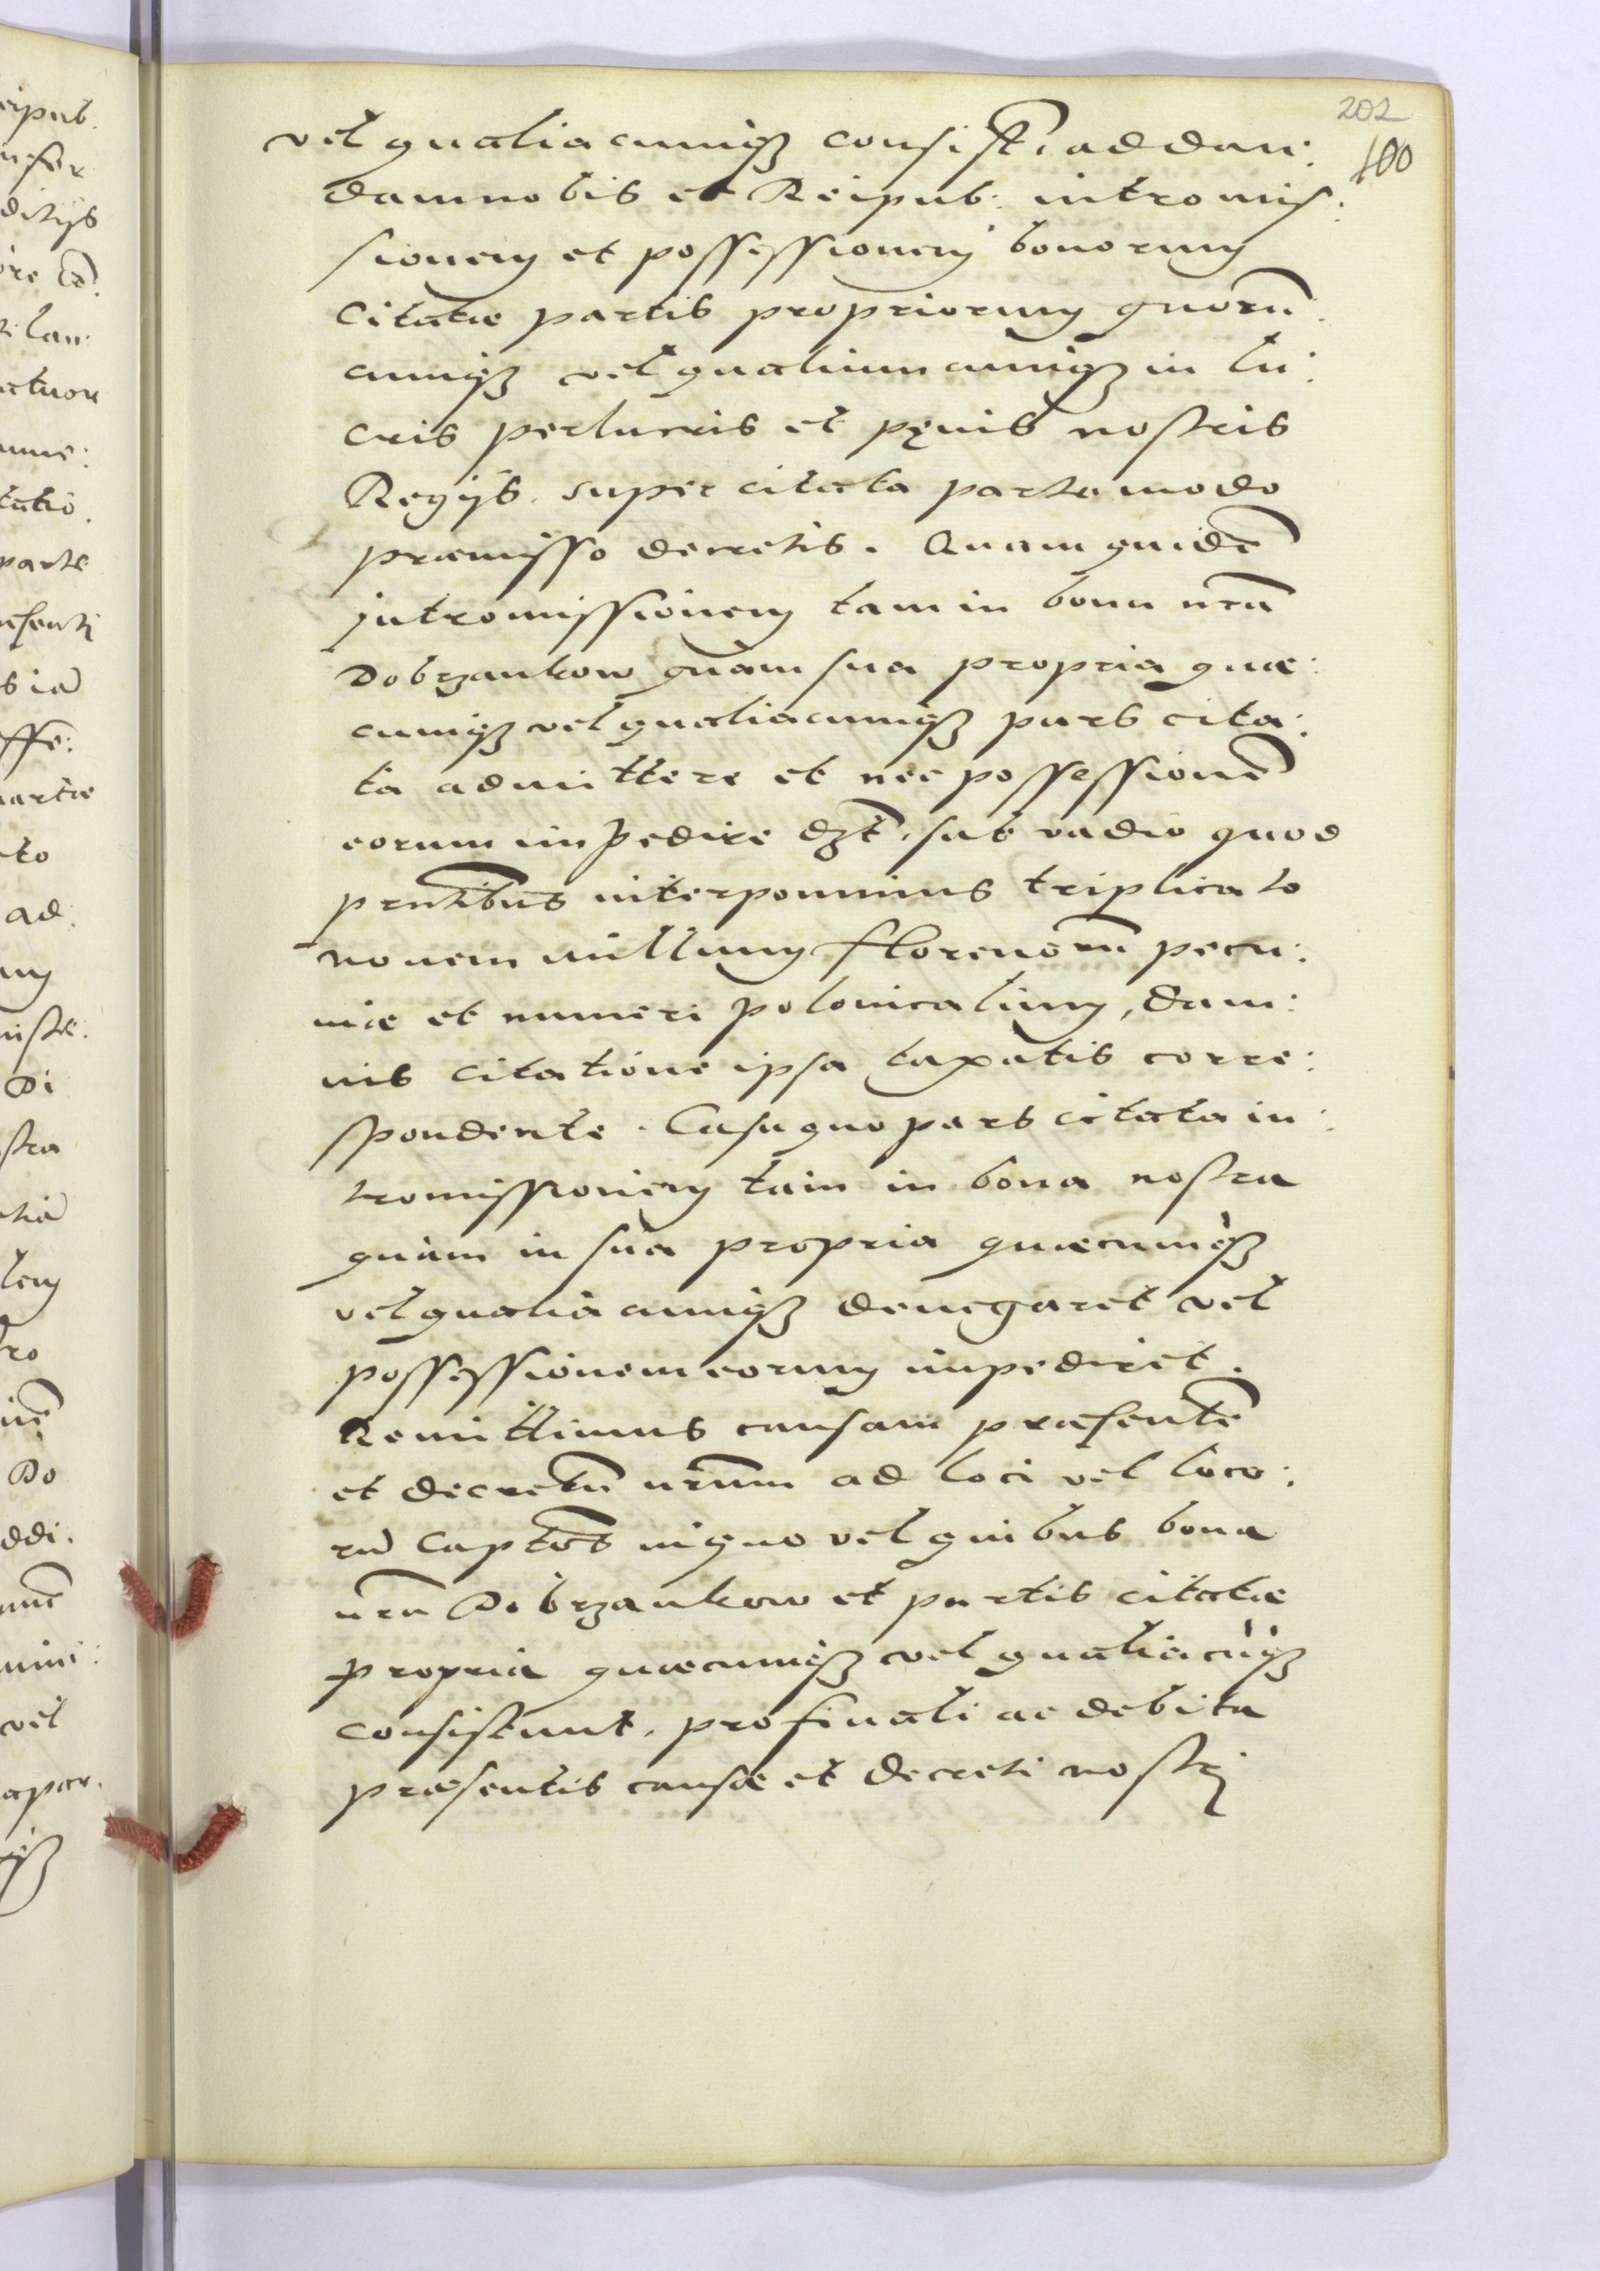 202
100
vel qualiacunqꝫ consist. ad dan:
dam nobis et Reipub: intromis:
sionem et possessionem bonorum
Citatæ partis propriorum quorū:
cunqꝫ vel qualiumcunqꝫ in lu:
cris perlucris et pęnis nostris
Regijs. super citata parte modo
præmisso decretis. Quam quidē
jntromissionem tam in bona nrā
Dobrzankow quàm sua propria quæ:
cunqꝫ vel qualiacunqꝫ pars cita:
ta admittere et nec possessionē
eorum impedire dꝫt, sub vadio quod
prntibus interponimus triplicato
nouem millium florenorū pecu:
niæ et numeri polonicalium, dam:
nis citatione ipsa taxatis corre:
spondente. Casu quo pars citata in:
tromissionem tam in bona nostra
quàm in sua propria quæcunqꝫ
vel qualiacunqꝫ denegaret vel
possessionem eorum impediret.
Remittimus causam præsentē
et decretū nrūm ad loci vel loco:
rū Captēos in quo vel quibus bona
nrā Dobrzankow et partis citatæ
propria quæcunqꝫ vel qualiacūqꝫ
consistunt, pro finali ac debita
præsentis causæ et decreti nostrj